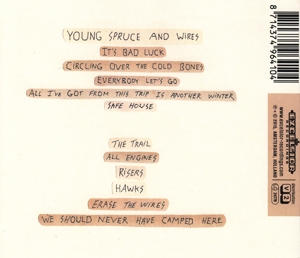 YOUNG SPRUCE AND WIRES
IT'S BAD LUCK
CIRCLING OVER THE COLD BONES
EVERYBODY LET'S GO
ALL I'VE GOT FROM THIS TRIP IS ANOTHER WINTER
SAFE HOUSE
THE TRAIL
ALL ENGINES
RISERS
HAWKS
ERASE THE WIRES
WE SHOULD NEVER HAVE CAMPED HERE
8 714374 964104
EXCELSIOR
V2